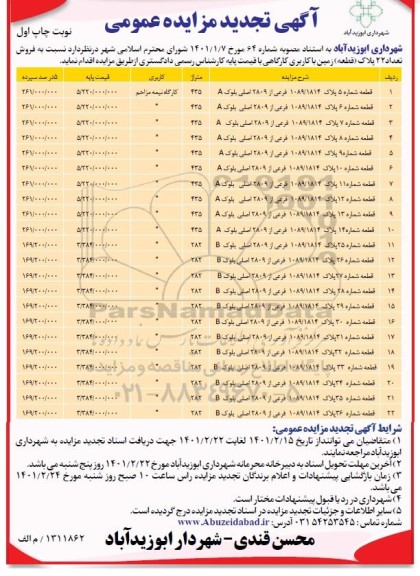 آگهی تجدید مزایده عمومی
نوبت چاپ اول
شهرداری ابوزیدآباد
شهرداری ابوزیدآباد به استناد مصوبه شماره ۶۴ مورخ ۱۴۰۱/۱/۷ شورای محترم اسلامی شهر درنظردارد نسبت به فروش
تعداد ۲۲ پلاک (قطعه) زمین با کاربری کارگاهی با قیمت پایه کارشناس رسمی دادگستری ازطریق مزایده اقدام نماید.
ردیف شرح مزایده متراژ کاربری قیمت پایه ۵درصد سپرده
۱ قطعه شماره ۵ پلاک ۱۰۸۹/۱۸۱۴ فرعی از ۲۸۰۹ اصلی بلوک A ۴۳۵ کارگاه نیمه مزاحم ۵/۲۲۰/۰۰۰/۰۰۰ ۲۶۱/۰۰۰/۰۰۰
۲ قطعه شماره ۶ پلاک ۱۰۸۹/۱۸۱۴ فرعی از ۲۸۰۹ اصلی بلوک A ۴۳۵ " ۵/۲۲۰/۰۰۰/۰۰۰ ۲۶۱/۰۰۰/۰۰۰
۳ قطعه شماره ۷ پلاک ۱۰۸۹/۱۸۱۴ فرعی از ۲۸۰۹ اصلی بلوک A ۴۳۵ " ۵/۲۲۰/۰۰۰/۰۰۰ ۲۶۱/۰۰۰/۰۰۰
۴ قطعه شماره ۸ پلاک ۱۰۸۹/۱۸۱۴ فرعی از ۲۸۰۹ اصلی بلوک A ۴۳۵ " ۵/۲۲۰/۰۰۰/۰۰۰ ۲۶۱/۰۰۰/۰۰۰
۵ قطعه شماره۹ پلاک ۱۰۸۹/۱۸۱۴ فرعی از ۲۸۰۹ اصلی بلوک A ۴۳۵ " ۵/۲۲۰/۰۰۰/۰۰۰ ۲۶۱/۰۰۰/۰۰۰
۶ قطعه شماره ۱۰ پلاک ۱۰۸۹/۱۸۱۴ فرعی از ۲۸۰۹ اصلی بلوک A ۴۳۵ " ۵/۲۲۰/۰۰۰/۰۰۰ ۲۶۱/۰۰۰/۰۰۰
۷ قطعه شماره ۱۱ پلاک ۱۰۸۹/۱۸۱۴ فرعی از ۲۸۰۹ اصلی بلوک A ۴۳۵ " ۵/۲۲۰/۰۰۰/۰۰۰ ۲۶۱/۰۰۰/۰۰۰
۸ قطعه شماره ۱۲ پلاک ۱۰۸۹/۱۸۱۴ فرعی از ۲۸۰۹ اصلی بلوک A ۴۳۵ " ۵/۲۲۰/۰۰۰/۰۰۰ ۲۶۱/۰۰۰/۰۰۰
۹ قطعه شماره ۱۳ پلاک ۱۰۸۹/۱۸۱۴ فرعی از ۲۸۰۹ اصلی بلوک A ۴۳۵ " ۵/۲۲۰/۰۰۰/۰۰۰ ۲۶۱/۰۰۰/۰۰۰
۱۰ قطعه شماره ۱۴ پلاک ۱۰۸۹/۱۸۱۴ فرعی از ۲۸۰۹ اصلی بلوک A ۴۳۵ " ۵/۲۲۰/۰۰۰/۰۰۰ ۲۶۱/۰۰۰/۰۰۰
۱۱ قطعه شماره ۲۵ پلاک ۱۰۸۹/۱۸۱۴ فرعی از ۲۸۰۹ اصلی بلوک B ۲۸۲ " ۳/۳۸۴/۰۰۰/۰۰۰ ۱۶۹/۲۰۰/۰۰۰
۱۲ قطعه شماره ۲۶ پلاک ۱۰۸۹/۱۸۱۴ فرعی از ۲۸۰۹ اصلی بلوک B ۲۸۲ " ۳/۳۸۴/۰۰۰/۰۰۰ ۱۶۹/۲۰۰/۰۰۰
۱۳ قطعه شماره ۲۷ پلاک ۱۰۸۹/۱۸۱۴ فرعی از ۲۸۰۹ اصلی بلوک B ۲۸۲ " ۳/۳۸۴/۰۰۰/۰۰۰ ۱۶۹/۲۰۰/۰۰۰
۱۴ قطعه شماره ۲۸ پلاک ۱۰۸۹/۱۸۱۴ فرعی از ۲۸۰۹ اصلی بلوک B ۲۸۲ " ۳/۳۸۴/۰۰۰/۰۰۰ ۱۶۹/۲۰۰/۰۰۰
۱۵ قطعه شماره ۲۹ پلاک ۱۰۸۹/۱۸۱۴ فرعی از ۲۸۰۹ اصلی بلوک B ۲۸۲ " ۳/۳۸۴/۰۰۰/۰۰۰ ۱۶۹/۲۰۰/۰۰۰
۱۶ قطعه شماره ۳۰ پلاک ۱۰۸۹/۱۸۱۴ فرعی از ۲۸۰۹ اصلی بلوک B ۲۸۲ " ۳/۳۸۴/۰۰۰/۰۰۰ ۱۶۹/۲۰۰/۰۰۰
۱۷ قطعه شماره ۳۱ پلاک ۱۰۸۹/۱۸۱۴ فرعی از ۲۸۰۹ اصلی بلوک B ۲۸۲ " ۳/۳۸۴/۰۰۰/۰۰۰ ۱۶۹/۲۰۰/۰۰۰
۱۸ قطعه شماره ۳۲ پلاک ۱۰۸۹/۱۸۱۴ فرعی از ۲۸۰۹ اصلی بلوک B ۲۸۲ " ۳/۳۸۴/۰۰۰/۰۰۰ ۱۶۹/۲۰۰/۰۰۰
۱۹ قطعه شماره ۳۳ پلاک ۱۰۸۹/۱۸۱۴ فرعی از ۲۸۰۹ اصلی بلوک B ۲۸۲ " ۳/۳۸۴/۰۰۰/۰۰۰ ۱۶۹/۲۰۰/۰۰۰
۲۰ قطعه شماره ۳۴ پلاک ۱۰۸۹/۱۸۱۴ فرعی از ۲۸۰۹ اصلی بلوک B ۲۸۲ " ۳/۳۸۴/۰۰۰/۰۰۰ ۱۶۹/۲۰۰/۰۰۰
۲۱ قطعه شماره ۳۵ پلاک ۱۰۸۹/۱۸۱۴ فرعی از ۲۸۰۹ اصلی بلوک B ۲۸۲ " ۳/۳۸۴/۰۰۰/۰۰۰ ۱۶۹/۲۰۰/۰۰۰
۲۲ قطعه شماره ۳۶ پلاک ۱۰۸۹/۱۸۱۴ فرعی از ۲۸۰۹ اصلی بلوک B ۲۸۲ " ۳/۳۸۴/۰۰۰/۰۰۰ ۱۶۹/۲۰۰/۰۰۰
ParsNamadData
شرایط آگهی تجدید مزایده عمومی:
۱) متقاضیان می توانند از تاریخ ۱۴۰۱/۲/۱۵ لغایت ۱۴۰۱/۲/۲۲ جهت دریافت اسناد تجدید مزایده به شهرداری
ابوزیدآباد مراجعه نمایند.
۲) آخرین مهلت تحویل اسناد به دبیرخانه محرمانه شهرداری ابوزیدآباد مورخ ۱۴۰۱/۲/۲۲ روز پنج شنبه می باشد.
۳) زمان بازگشایی پیشنهادات و اعلام برندگان تجدید مزایده راس ساعت ۱۰ صبح روز شنبه مورخ ۱۴۰۱/۲/۲۴
می باشد.
۴) شهرداری در رد یا قبول پیشنهادات مختار است.
۵) سایر اطلاعات و جزئیات تجدید مزایده در اسناد تجدید مزایده درج گردیده است.
شماره تماس: ۵۴۲۵۳۵۴۵ ۰۳۱ آدرس: www.Abuzeidabad.ir
محسن قندی - شهردار ابوزیدآباد
۱۳۱۱۸۶۲ / م الف